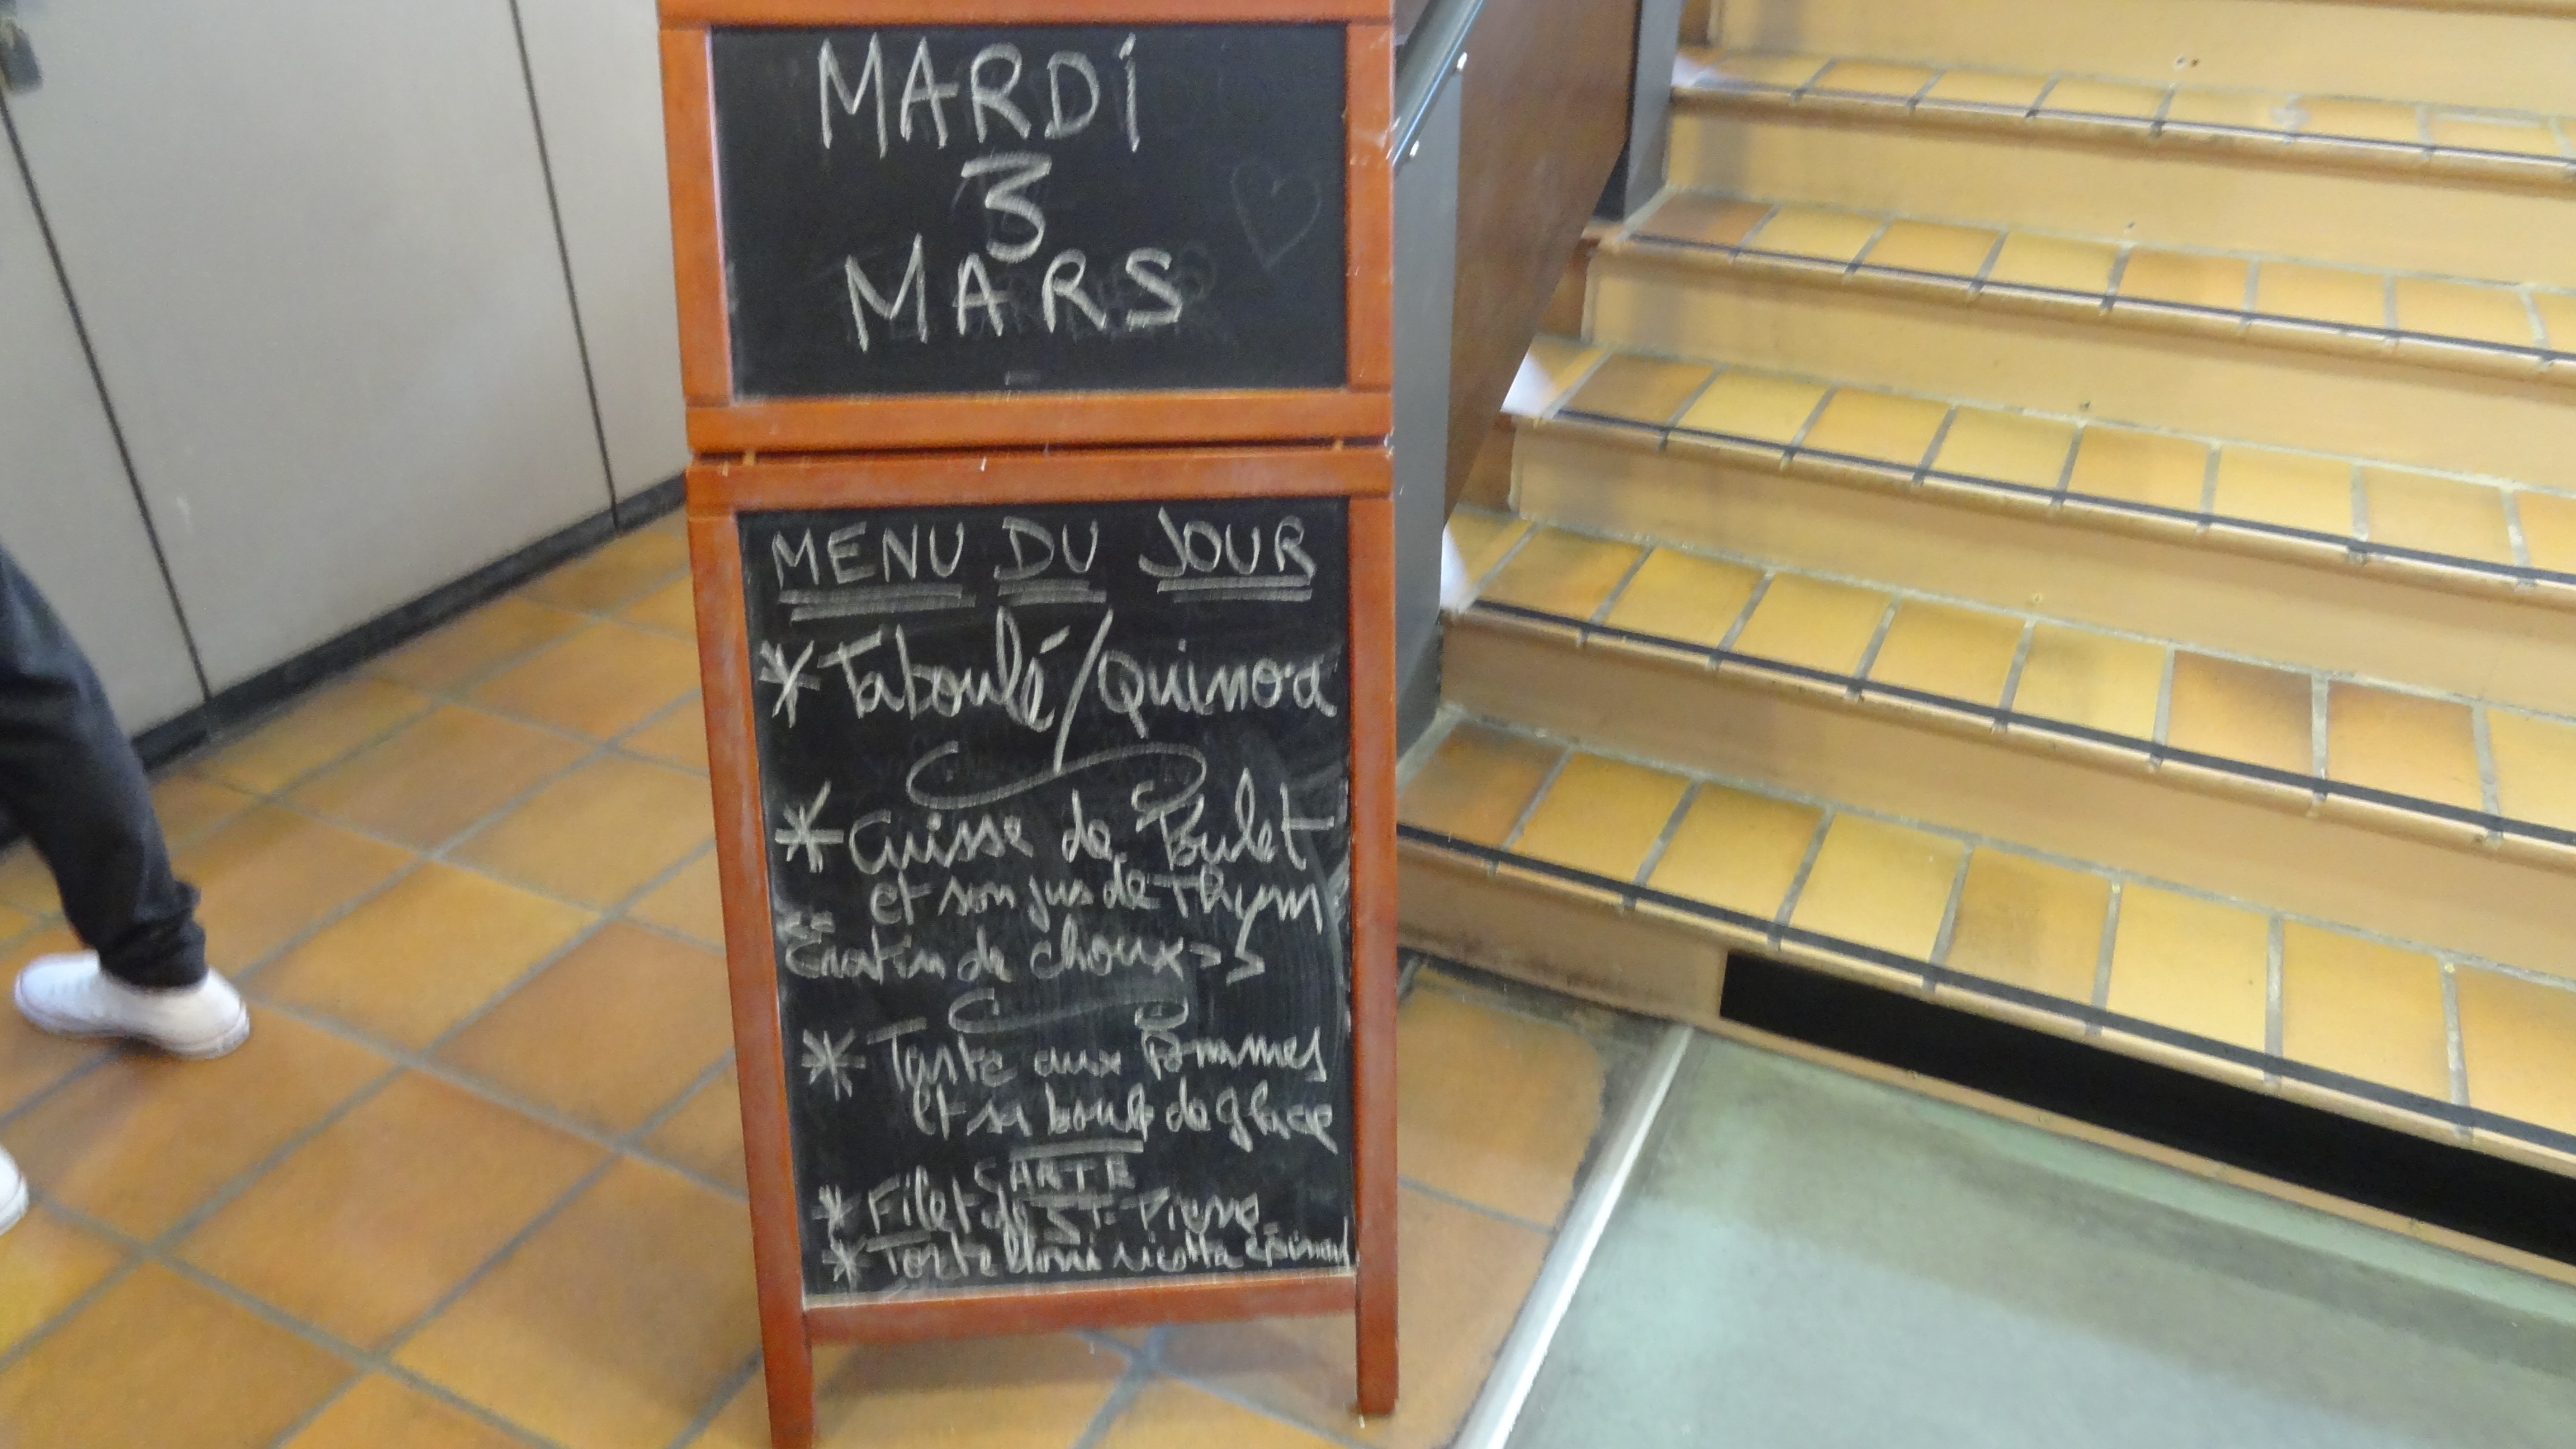 MARDi
3
MARS
MENU DU JOUR
* Taboulé/Quinoa
* Cuisse de Poulet
et son jus de Thym
Gratin de choux
* Tarte aux Pommes
et sa boule de glace
CARTE
* Filet de St. Pierre
* Torte ricotta épinard